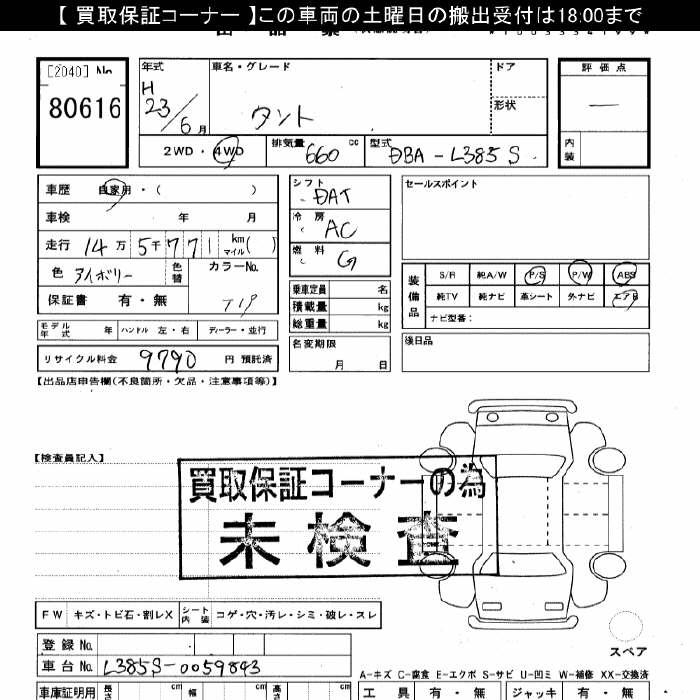 【 買取保証コーナー 】この車両の土曜日の搬出受付は18:00まで
[2040] No
80616
年式
H 23/6 月
車名・グレード
タント
ドア
形状
評価点
—
内装
2WD・4WD
排気量 660 cc
型式 DBA-L385S
車歴 自家用・( )
車検 年 月
走行 14万5千771 km マイル( )
色 アイボリー 色替 カラーNo. T19
保証書 有・無
シフト DAT
冷房 AC
燃料 G
乗車定員 名
積載量 kg
総重量 kg
セールスポイント
装備品
S/R 純A/W P/S P/W ABS
純TV 純ナビ 革シート 外ナビ エアB
ナビ型番:
モデル年式 年 ハンドル 左・右 ディーラー・並行
リサイクル料金 9790 円 預託済
名変期限
月 日
後日品
【出品店申告欄(不良箇所・欠品・注意事項等)】
【検査員記入】
買取保証コーナーの為
未検査
FW キズ・トビ石・割レX シート内装 コゲ・穴・汚レ・シミ・破レ・スレ
スペア
登録 No.
車台 No. L385S-0059843
A-キズ C-腐食 E-エクボ S-サビ U-凹ミ W-補修 XX-交換済
車庫証明用 長さ cm 幅 cm 高さ cm
工具 有・無 ジャッキ 有・無